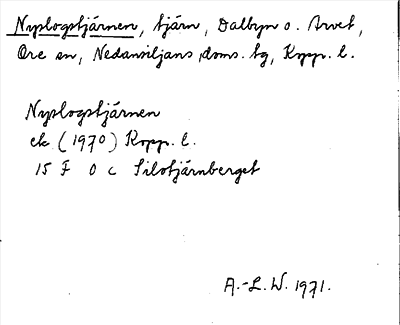 Nyslogstjärnen, tjärn, Dalbyn o. Arvet,
Ore sn, Nedansiljans doms. tg, Kopp. l.
Nyslogstjärnen
ek (1970) Kopp. l.
15 F 0 c Silotjärnberget
A.-L.W. 1971.